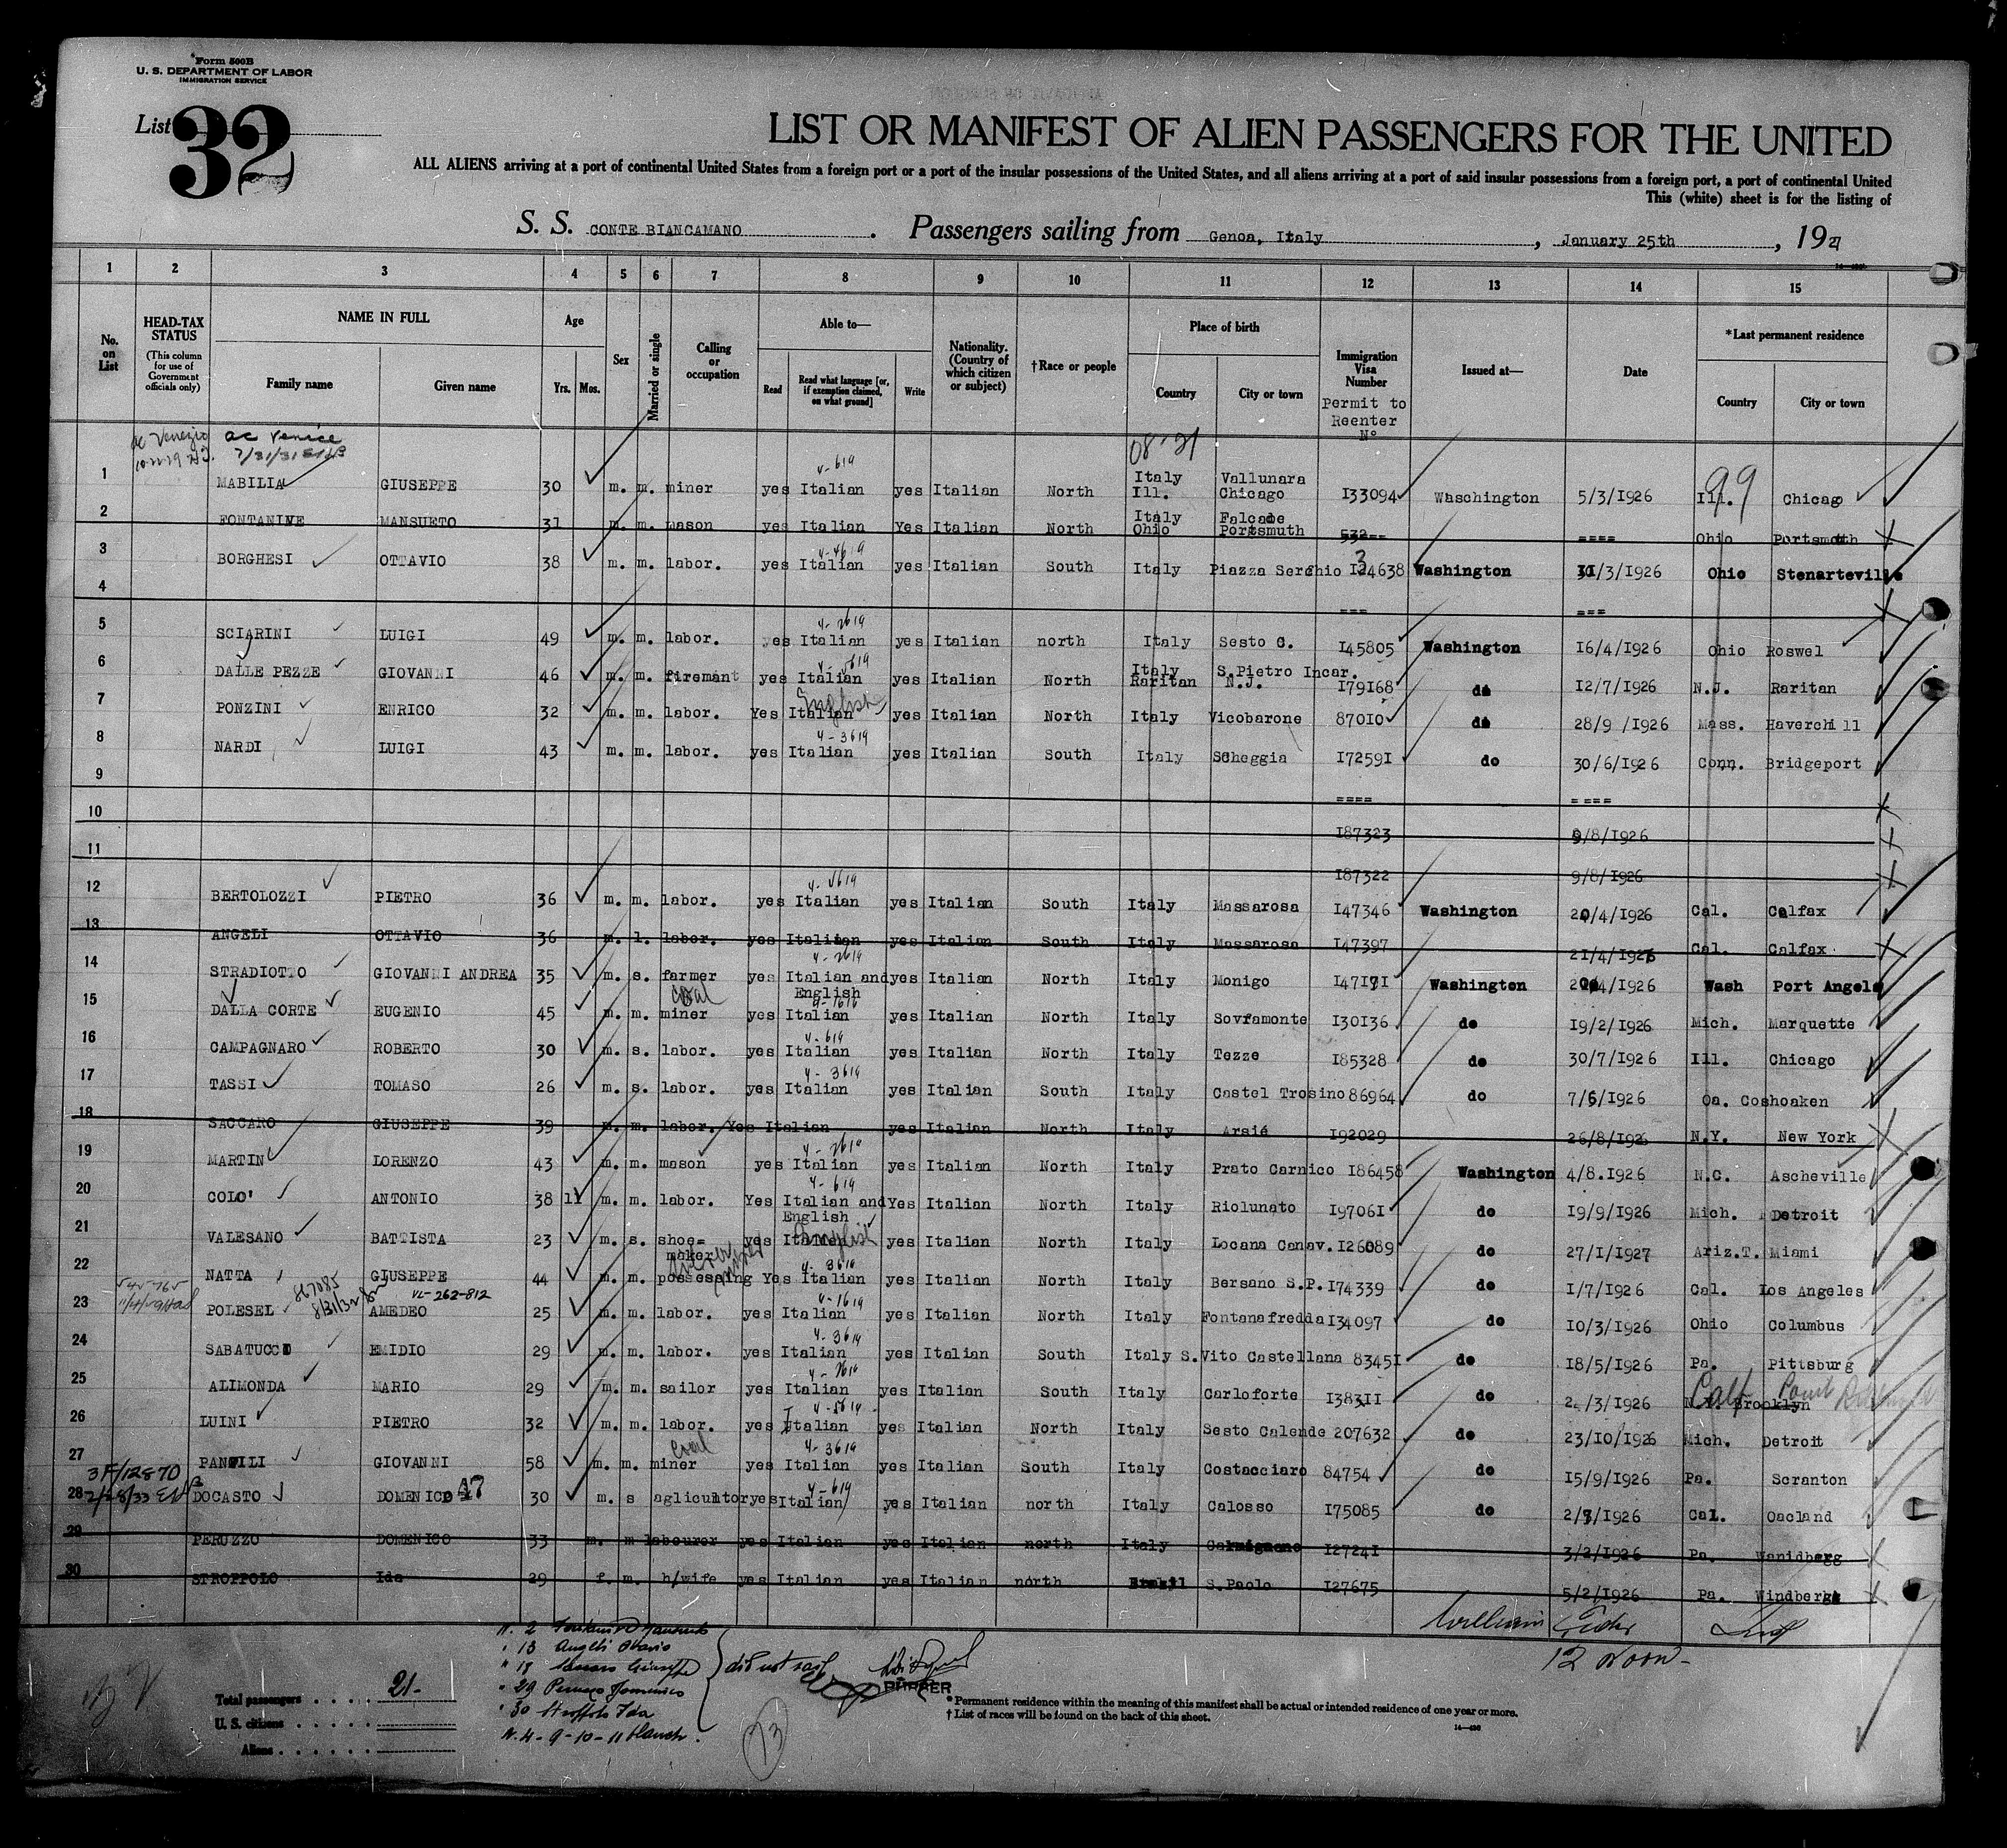 Form 500B
U. S. DEPARTMENT OF LABOR
IMMIGRATION SERVICE
List 32
LIST OR MANIFEST OF ALIEN PASSENGERS FOR THE UNITED
ALL ALIENS arriving at a port of continental United States from a foreign port or a port of the insular possessions of the United States, and all aliens arriving at a port of said insular possessions from a foreign port, a port of continental United
This (white) sheet is for the listing of
S. S. CONTE BIANCAMANO . Passengers sailing from Genoa, Italy , January 25th , 1927
1 2 3 4 5 6 7 8 9 10 11 12 13 14 15
No. on List
HEAD-TAX STATUS
(This column for use of Government officials only)
NAME IN FULL
Family name Given name
Age
Yrs. Mos.
Sex
Married or single
Calling or occupation
Able to—
Read Read what language [or, if exemption claimed, on what ground] Write
Nationality. (Country of which citizen or subject)
†Race or people
Place of birth
Country City or town
Immigration Visa Number
Permit to Reenter N°
Issued at—
Date
*Last permanent residence
Country City or town
ac Venezia ac Venice 08-21
10-21-29 7/31/31
4-619 Italy Vallunara 99
1 MABILIA GIUSEPPE 30 m. m. miner yes Italian yes Italian North Ill. Chicago I33094 Waschington 5/3/1926 Ill. Chicag
Italy Falcade
2 FONTANIVE MANSUETO 31 m. m. mason yes Italian Yes Italian North Ohio Portsmuth 532-- ==== Ohio Portsmoth
3 BORGHESI OTTAVIO 38 m. m. labor. yes Italian yes Italian South Italy Piazza Serchio I34638 Washington 31/3/1926 Ohio Stenarteville
4 === ===
4-2619
5 SCIARINI LUIGI 49 m. m. labor. yes Italian yes Italian north Italy Sesto C. I45805 Washington I6/4/I926 Ohio Roswel
Italy S.Pietro Incar.
6 DALLE PEZZE GIOVANNI 46 m. m. firemant yes Italian yes Italian North Raritan N.J. I79I68 do I2/7/I926 N.J. Raritan
English
7 PONZINI ENRICO 32 m. m. labor. Yes Italian yes Italian North Italy Vicobarone 870I0 do 28/9 /I926 Mass. Haverchill
4-3619
8 NARDI LUIGI 43 m. m. labor. yes Italian yes Italian South Italy Scheggia I7259I do 30/6/I926 Conn. Bridgeport
9 ==== ====
10 I87323 9/8/1926
11 I87322 9/8/I926
12 BERTOLOZZI PIETRO 36 m. m. labor. yes Italian yes Italian South Italy Massarosa I47346 Washington 20/4/I926 Cal. Colfax
13 ANGELI OTTAVIO 36 m. l. labor. yes Italian yes Italian South Italy Massarosa I47397 21/4/1926 Cal. Calfax
4-2619
14 STRADIOTTO GIOVANNI ANDREA 35 m. s. farmer yes Italian and English yes Italian North Italy Monigo I47I7I Washington 20/4/1926 Wash Port Angels
coal
15 DALLA CORTE EUGENIO 45 m. m. miner yes Italian yes Italian North Italy Sovramonte I30I36 do I9/2/I926 Mich. Marquette
4-619
16 CAMPAGNARO ROBERTO 30 m. s. labor. yes Italian yes Italian North Italy Tezze I85328 do 30/7/I926 Ill. Chicago
4-3619
17 TASSI TOMASO 26 m. s. labor. yes Italian yes Italian South Italy Castel Trosino 86964 do 7/6/1926 Oa. Coshoaken
18 SACCARO GIUSEPPE 39 m. m. labor. Yes Italian yes Italian North Italy Arsié I92029 26/8/1926 N.Y. New York
4-2619
19 MARTIN LORENZO 43 m. m. mason yes Italian yes Italian North Italy Prato Carnico I86458 Washington 4/8.I926 N.C. Ascheville
4-619
20 COLO' ANTONIO 38 11 m. m. labor. Yes Italian and English Yes Italian North Italy Riolunato I9706I do I9/9/I926 Mich. Detroit
English
21 VALESANO BATTISTA 23 m. s. shoe= moker yes Italian yes Italian North Italy Locana Canav. I26089 do 27/I/I927 Ariz.T. Miami
4-3619
22 NATTA GIUSEPPE 44 m. m. possessing Yes Italian yes Italian North Italy Bersano S.P. I74339 do I/7/I926 Cal. Los Angeles
867085 VL-262-812 4-1619
23 POLESEL AMEDEO 25 m. m. labor. yes Italian yes Italian North Italy Fontanafredda I34097 do I0/3/I926 Ohio Columbus
4-3619
24 SABATUCCI EMIDIO 29 m. m. labor. yes Italian yes Italian South Italy S.Vito Castellana 8345I do I8/5/I926 Pa. Pittsburg
25 ALIMONDA MARIO 29 m. m. sailor yes Italian yes Italian South Italy Carloforte I383II do /3/I926 Calf Brooklyn
4-5619
26 LUINI PIETRO 32 m. m. labor. yes Italian yes Italian North Italy Sesto Calende 207632 do 23/I0/I926 Mich. Detroit
coal 4-3619
27 PANFILI GIOVANNI 58 m. m. miner yes Italian yes Italian South Italy Costacciaro 84754 do I5/9/I926 Pa. Scranton
3F/12870
2/28/33 4-619
28 DOCASTO DOMENICO 47 30 m. s aglicultor yes Italian yes Italian north Italy Calosso I75085 do 2/7/I926 Cal. Oacland
29 PERUZZO DOMENICO 33 m. m labourer yes Italian yes Italian north Italy Carmignano I2724I 3/2/1926 Pa. Wanidberg
30 STROPPOLO Ida 29 f. m. h/wife yes Italian yes Italian north Brasil S.Paolo I27675 5/2/I926 Pa. Windberg
William
12 noon-
N. 2 Fontanive Mansueto
" 13 Angeli Ottavio
" 18 Saccaro Giuseppe
" 29 Peruzzo Domenico
" 30 Stroppolo Ida
did not sail
N. 4 - 9 - 10 - 11 blanch.
PURSER
73
Total passengers . . . . 21-
U. S. citizens . . . . .
Aliens . . . . . .
* Permanent residence within the meaning of this manifest shall be actual or intended residence of one year or more.
† List of races will be found on the back of this sheet.